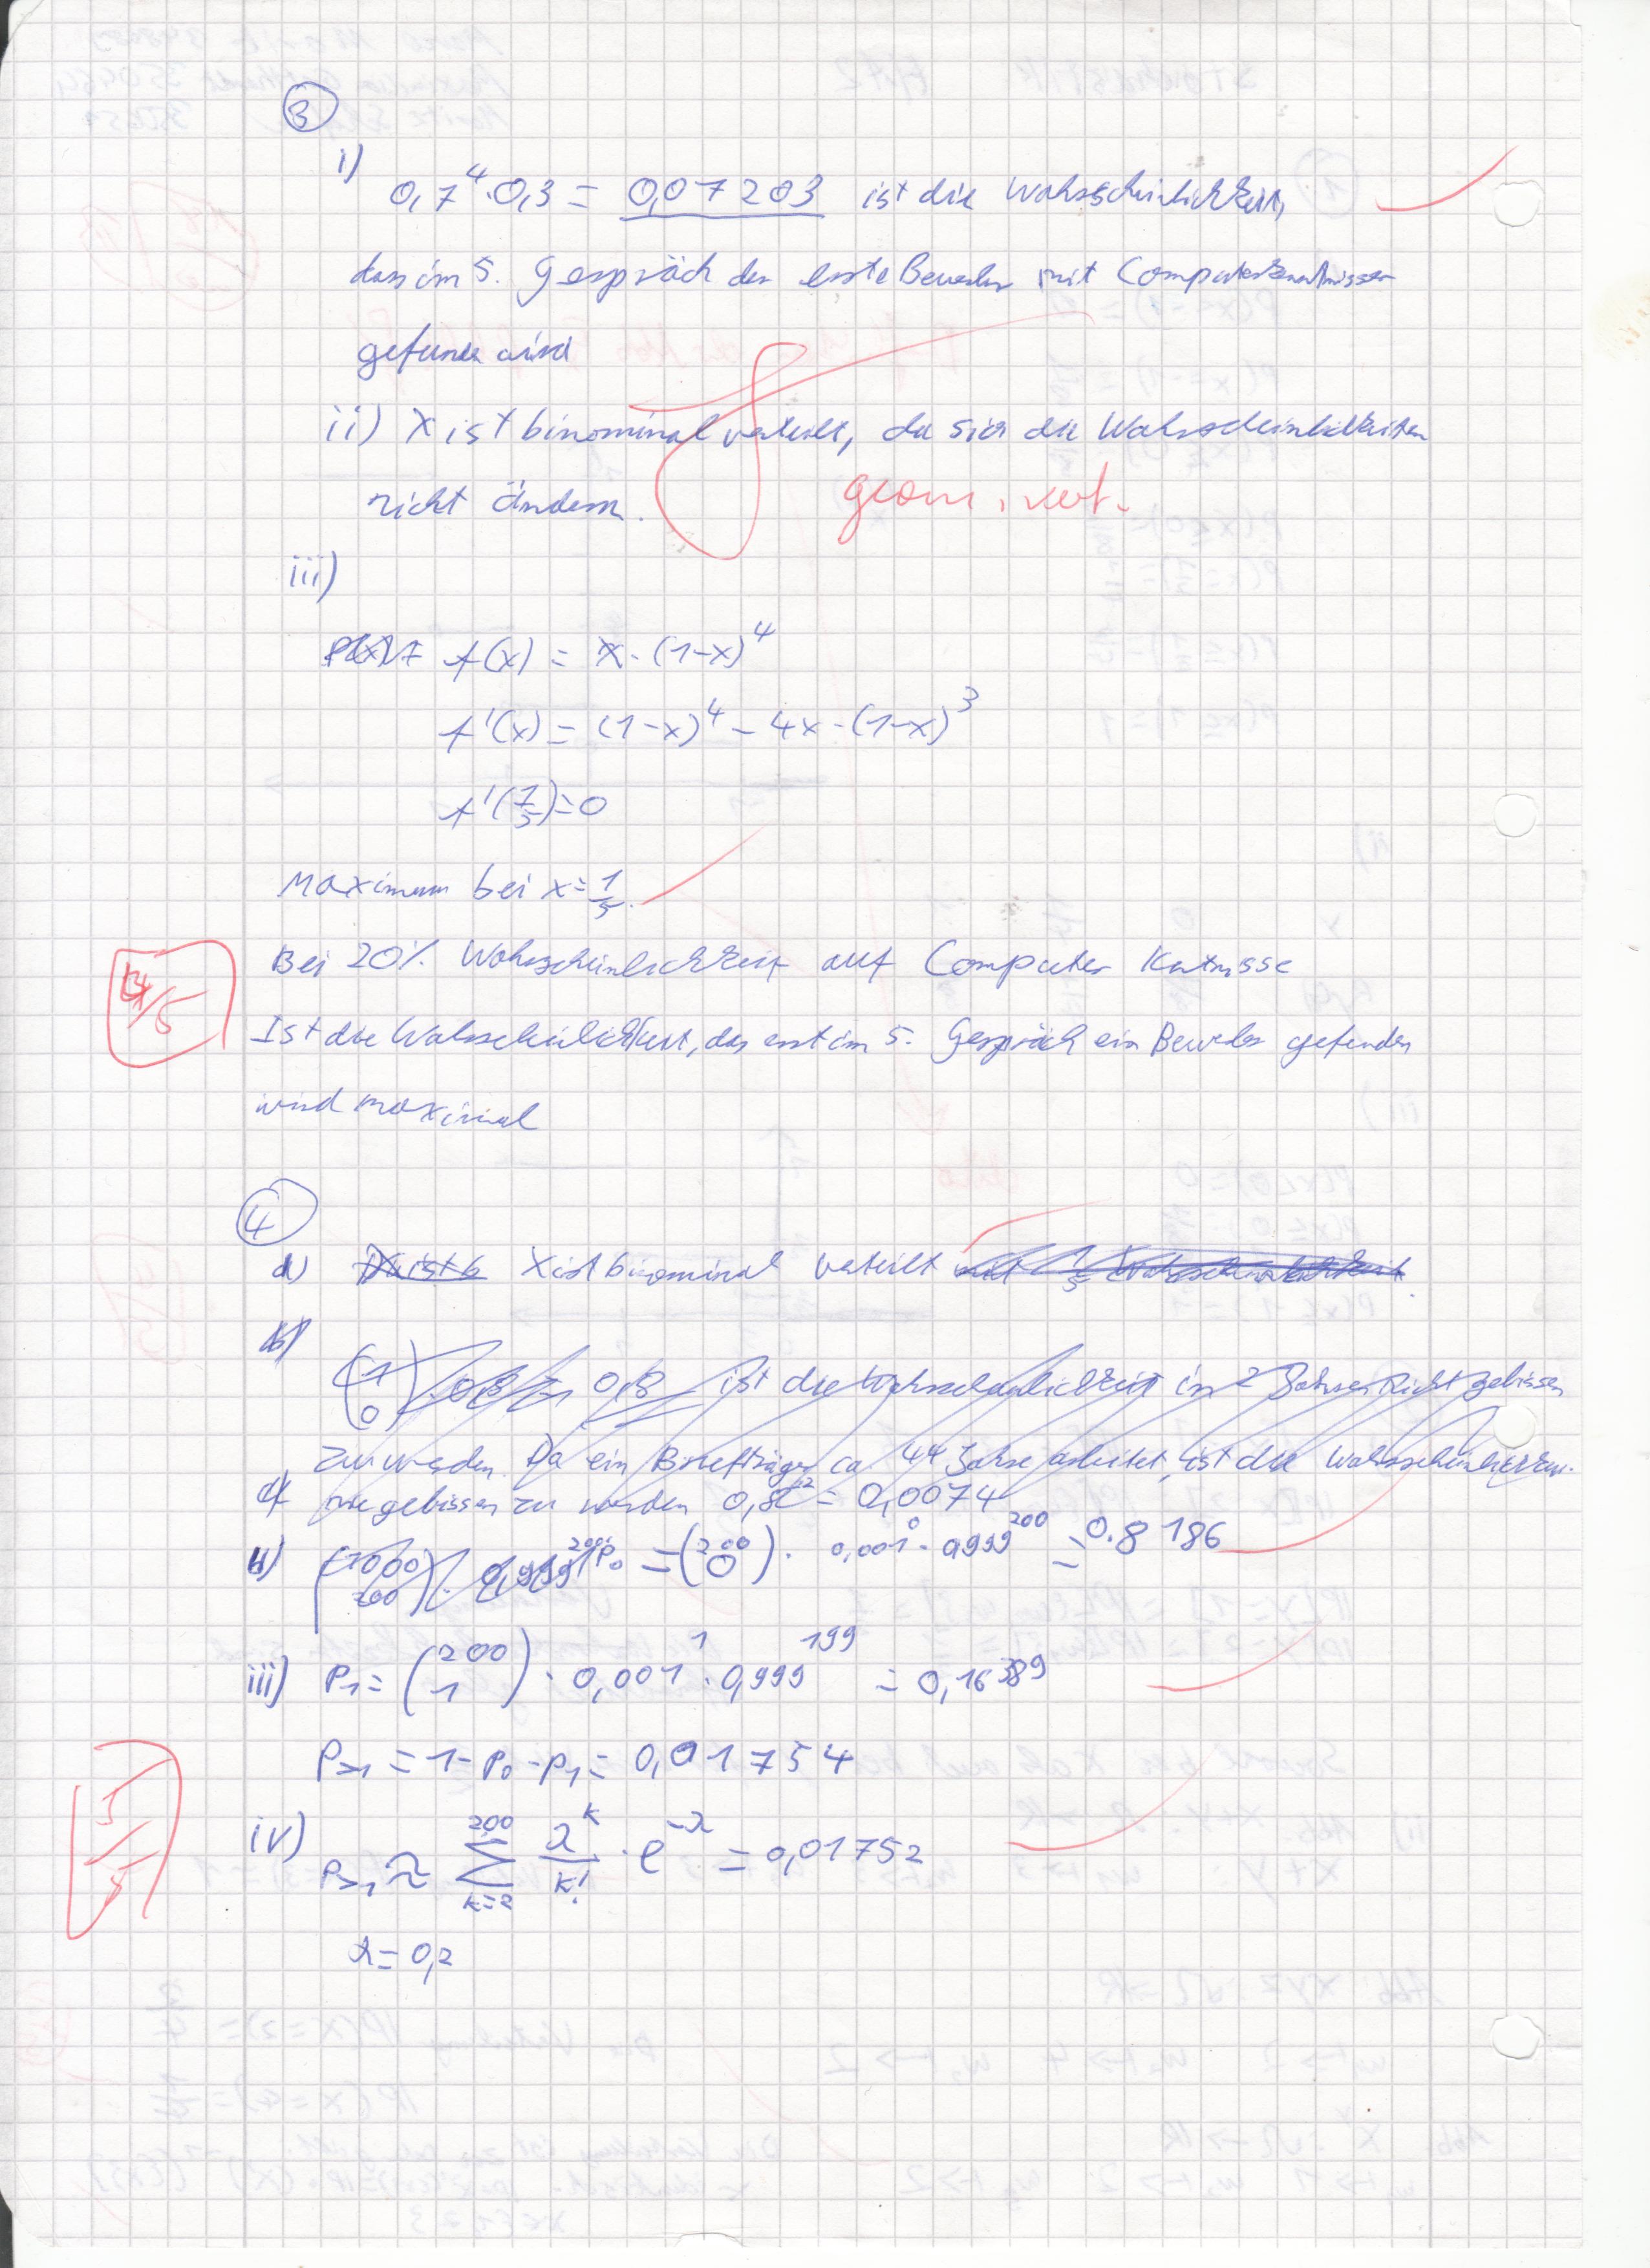 3
i)
0,7⁴·0,3 = 0,07203 ist die Wahrscheinlichkeit,
dass im 5. Gespräch der erste Bewerber mit Computerkenntnissen
gefunden wird
ii) X ist binominal verteilt, da sich die Wahrscheinlichkeiten
nicht ändern. f geom. vert.
iii)
f(x) = x·(1-x)⁴
f'(x) = (1-x)⁴ - 4x·(1-x)³
f'(1/5)=0
Maximum bei x=1/5.
Bei 20% Wahrscheinlichkeit auf Computer Kentnisse
4/5
Ist die Wahrscheinlichkeit, das erst im 5. Gespräch ein Bewerber gefunden
wird maximal
4
X ist binominal verteilt
ist die Wahrscheinlichkeit in 2 Jahren nicht gebissen
zu werden. Da ein Briefträger ca 44 Jahre arbeitet, ist die
nie gebissen zu werden = 0,0074
P₀ = (200 0) · 0,001⁰ · 0,999²⁰⁰ = 0.8186
iii) P₁ = (200 1) · 0,001¹ · 0,999¹⁹⁹ = 0,16389
P>1 = 1-P₀-P₁ = 0,01754
5/5
iv) P>1 ≈ ∑ k=2 200 λᵏ/k! · e^-λ = 0,01752
λ=0,2